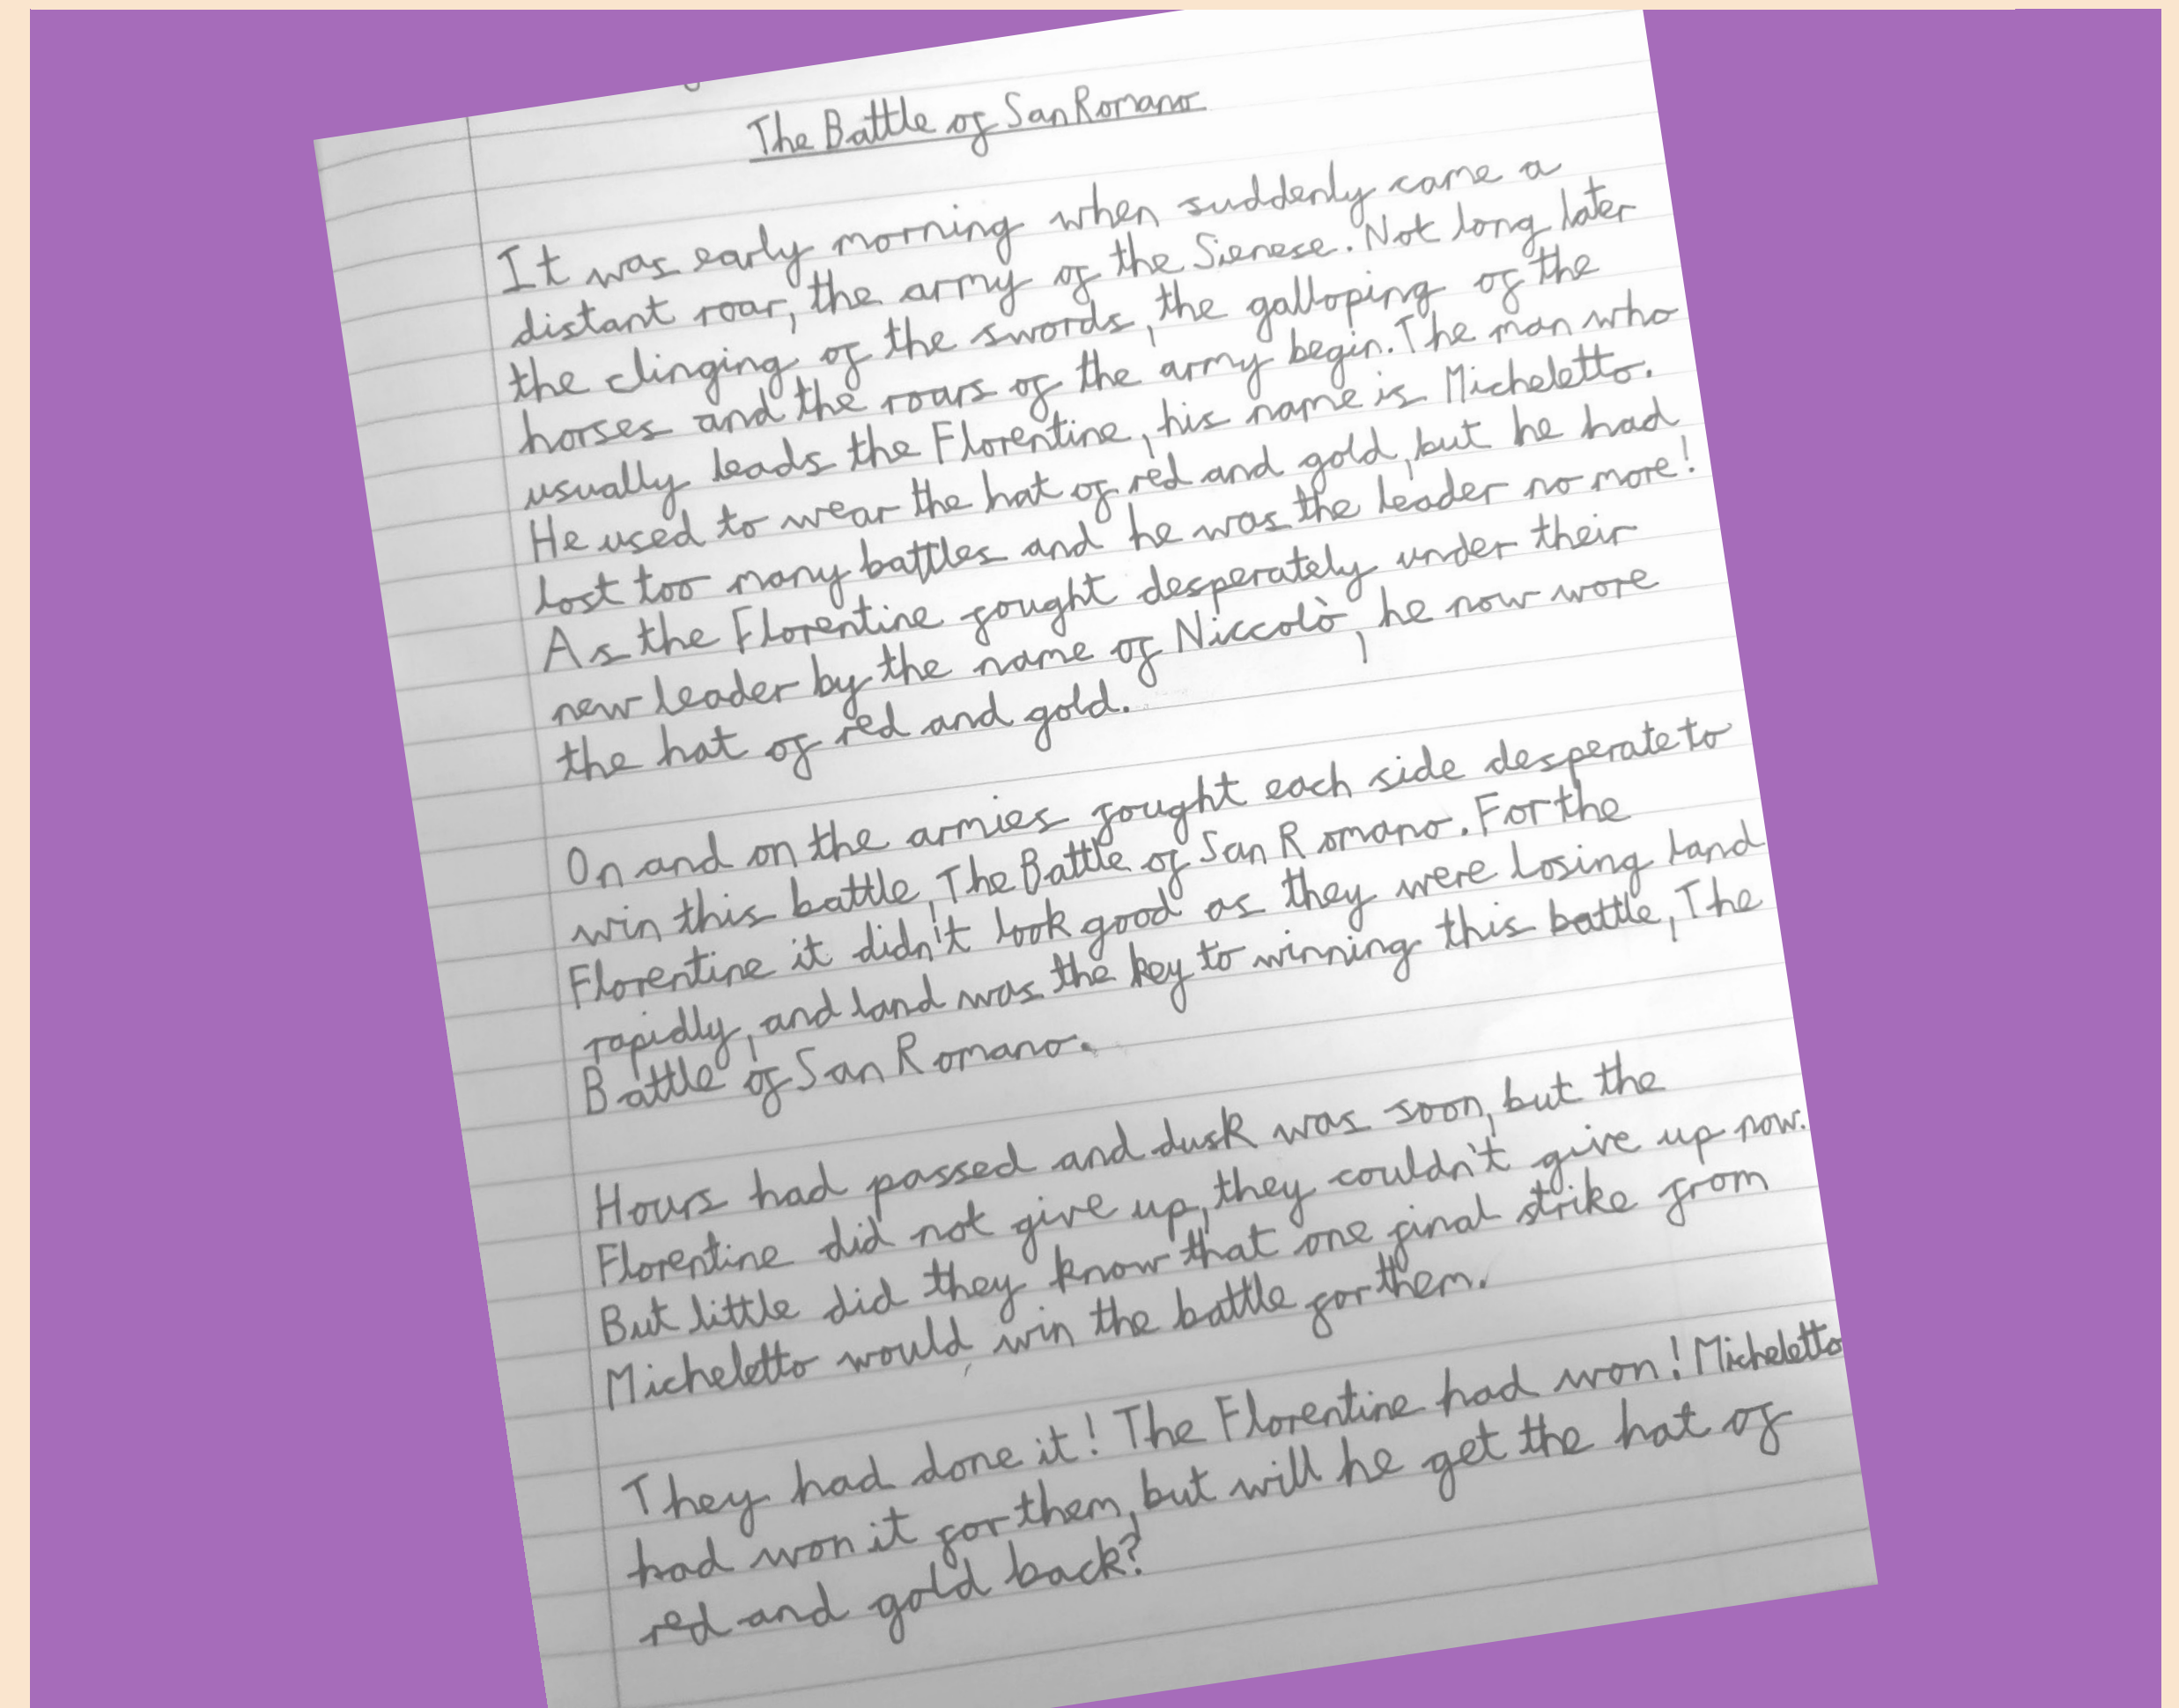 The Battle of San Romano
It was early morning when suddenly came a
distant roar, the army of the Sienese. Not long later
the clinging of the swords, the galloping of the
horses and the roars of the army begin. The man who
usually leads the Florentine, his name is Micheletto.
He used to wear the hat of red and gold, but he had
lost too many battles and he was the leader no more!
As the Florentine fought desperately under their
new leader by the name of Niccolò, he now wore
the hat of red and gold.
On and on the armies fought each side desperate to
win this battle, The Battle of San Romano. For the
Florentine it didn't look good as they were losing land
rapidly, and land was the key to winning this battle, The
Battle of San Romano.
Hours had passed and dusk was soon, but the
Florentine did not give up, they couldn't give up now.
But little did they know that one final strike from
Micheletto would win the battle for them.
They had done it! The Florentine had won! Micheletto
had won it for them, but will he get the hat of
red and gold back?